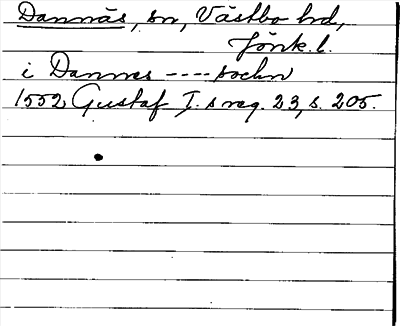 Dannäs, sn, Västbo hd,
Jönk. l.
i Dannes ---- sochn
1552 Gustaf I.s reg. 23, s. 205.